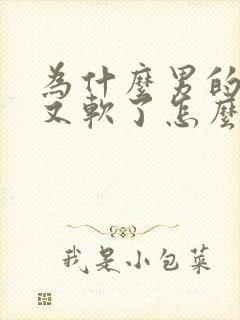 為什麼男的
又軟了怎麼
我是小包菜